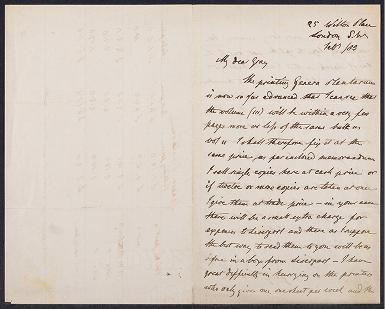 25 Wilton Place
London S.W.
Feb 1/83
My dear Gray
The printing Genera Plantarum
is now so far advanced that I can see that
the volume (iii) will be within a very few
pages more or less of the same bulk as
vol ii I shall therefore fix it at the
same price as per enclosed memorandum
I sell single copies here at cash price or
if twelve or more copies are taken at once
I give them at trade price – in your case
there will be a small extra charge for
expenses to Liverpool and there as I suppose
the best way to send them to you will be as
in a box from Liverpool – I have
great difficulty in hurrying on the printers
who only give me one sheet per week and the